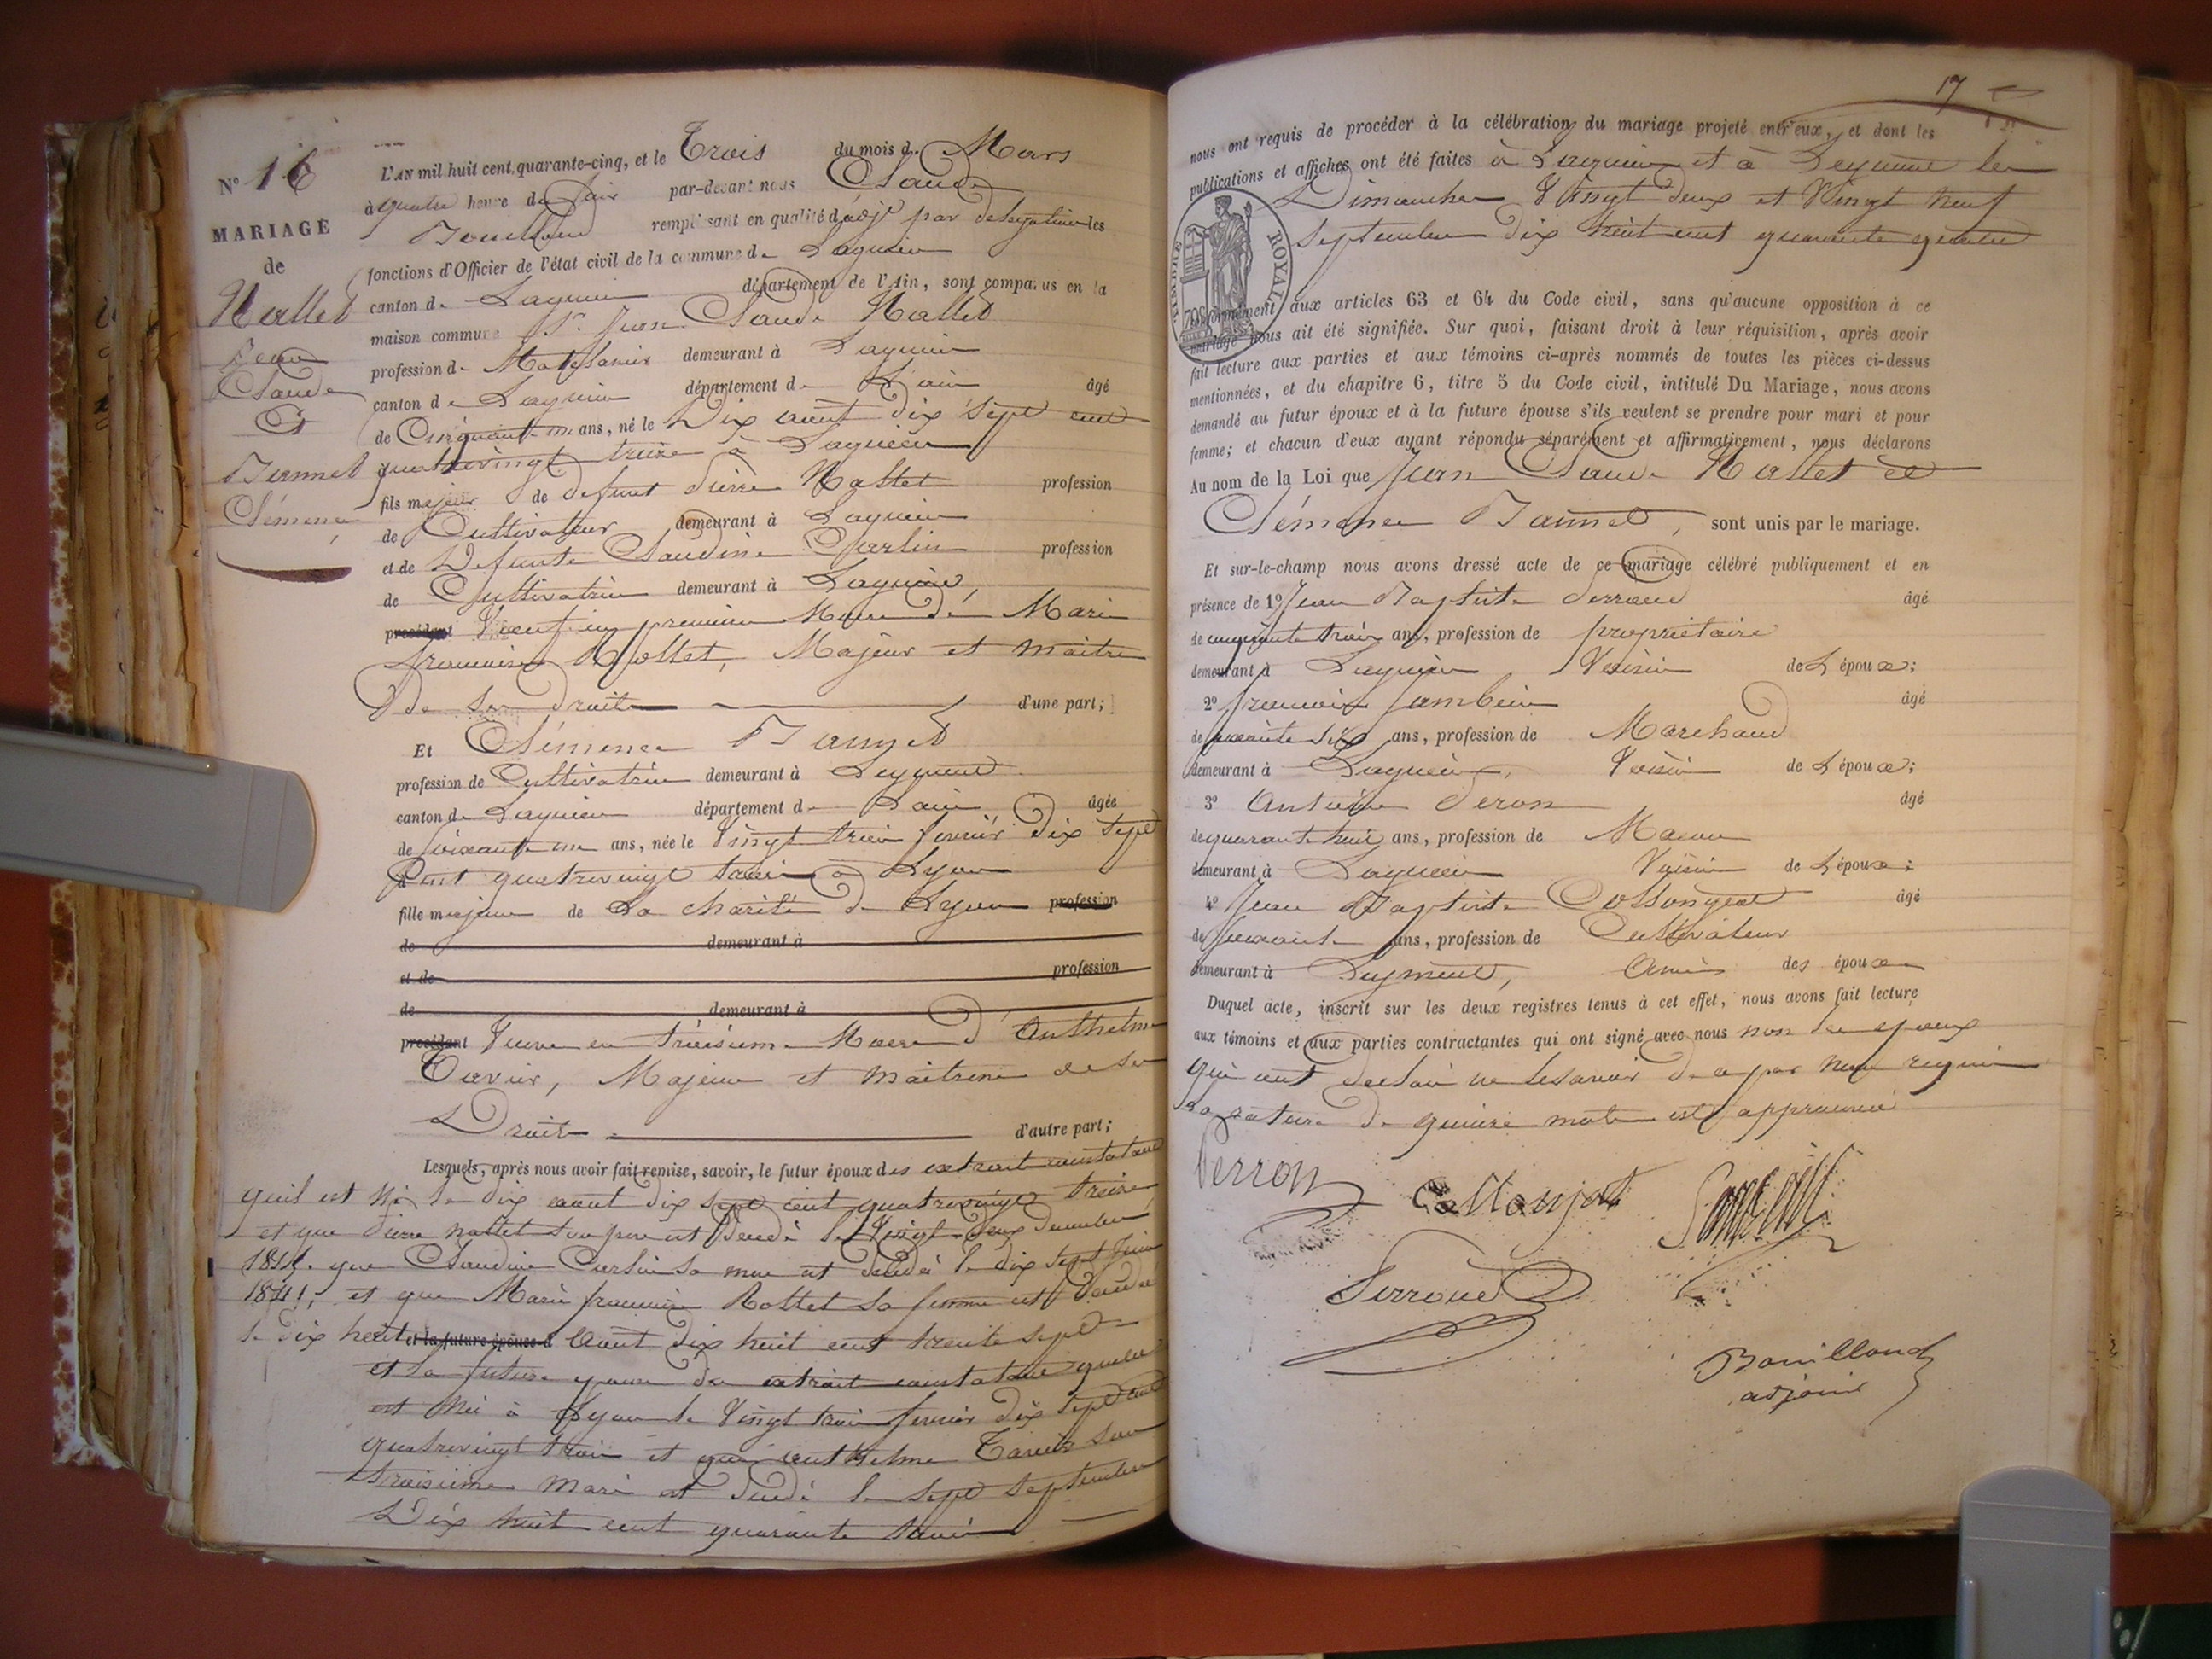 N° 16
MARIAGE
de
Nallet
Jean
Claude
Et
Bannet
Clémence
L'AN mil huit cent quarante-cinq, et le Trois du mois de Mars
à quatre heure du Soir par-devant nous Claude
Bouilloud remplissant en qualité d'adjt par délégation les
fonctions d'Officier de l'état civil de la commune de Lagnieu
canton de Lagnieu département de l'Ain, sont comparus en la
maison commune Sr. Jean Claude Nallet
profession de demeurant à Lagnieu
canton de Lagnieu département de L'ain âgé
de Cinquante un ans, né le Dix aout dix sept cent
quatrevingt treize à Lagnieu
fils majeur de defunt Pierre Nallet profession
de Cultivateur demeurant à Lagnieu
et de Defunte Claudine Curlin profession
de Cultivatrice demeurant à Lagnieu,
précédent Veuf en premiere Noces de Marie
francoise Rollet, Majeur et maitre
de ses droits d'une part;
Et Clémence Bannet
profession de Cultivatrice demeurant à Leyment
canton de Lagnieu département de L'ain âgée
de soixante un ans, née le Vingt trois fevrier dix sept
Cent quatrevingt trois à Lyon
fille majeure de La charité de Lyon profession
de demeurant à
et de profession
de demeurant à
précédent Veuve en troisieme Noces d'Anthelme
Tavier, Majeure et maitresse de ses
Droits d'autre part;
Lesquels, après nous avoir fait remise, savoir, le futur époux des extrait constatant
quil est né le dix aout dix sept cent quatrevingt treize
et que Pierre nallet son pere est décédé le Vingt deux decembre
1814. que Claudine Curlin sa mere est décédé le dix sept Juin
1811, et que Marie francoise Rollet sa femme est décédé
le dix huit et la future épouse d Aout dix huit cent trente sept
et la future epouse des extrait constatant quelle
est née à Lyon le Vingt trois fevrier dix sept cent
quatrevingt trois et que anthelme Tavier son
troisieme mari est décédé le sept septembre
Dix huit cent quarante trois
17
nous ont requis de procéder à la célébration du mariage projeté entr'eux, et dont les
publications et affiches ont été faites à Lagnieu et à Leyment les
Dimanches Vingt deux et Vingt neuf
septembre dix huit cent quarante quatre
TIMBRE ROYAL
conformément aux articles 63 et 64 du Code civil, sans qu'aucune opposition à ce
mariage nous ait été signifiée. Sur quoi, faisant droit à leur réquisition, après avoir
fait lecture aux parties et aux témoins ci-après nommés de toutes les pièces ci-dessus
mentionnées, et du chapitre 6, titre 5 du Code civil, intitulé Du Mariage, nous avons
demandé au futur époux et à la future épouse s'ils veulent se prendre pour mari et pour
femme; et chacun d'eux ayant répondu séparément et affirmativement, nous déclarons
Au nom de la Loi que Jean Claude Nallet et
Clémence Bannet, sont unis par le mariage.
Et sur-le-champ nous avons dressé acte de ce mariage célébré publiquement et en
présence de 1° Jean Baptiste Serroud âgé
de cinquante trois ans, profession de propriétaire
demeurant à Lagnieu Voisin de L'époux;
2° francois Jambein âgé
de ans, profession de Marchand
demeurant à Lagnieu, Voisin de L'époux;
3° Antoine Peron âgé
de quarante huit ans, profession de Macon
demeurant à Lagnieu Voisin de L'époux;
4° Jean Baptiste Collonjeat âgé
de soixante ans, profession de Cultivateur
demeurant à Leyment, Amis des époux
Duquel acte, inscrit sur les deux registres tenus à cet effet, nous avons fait lecture
aux témoins et aux parties contractantes qui ont signé avec nous non les epoux
qui ont declaré ne le savoir de ce par nous requis
La rature de quinze mots est approuvée
Perron
Collonjat
Serroud
Bouilloud
adjoint